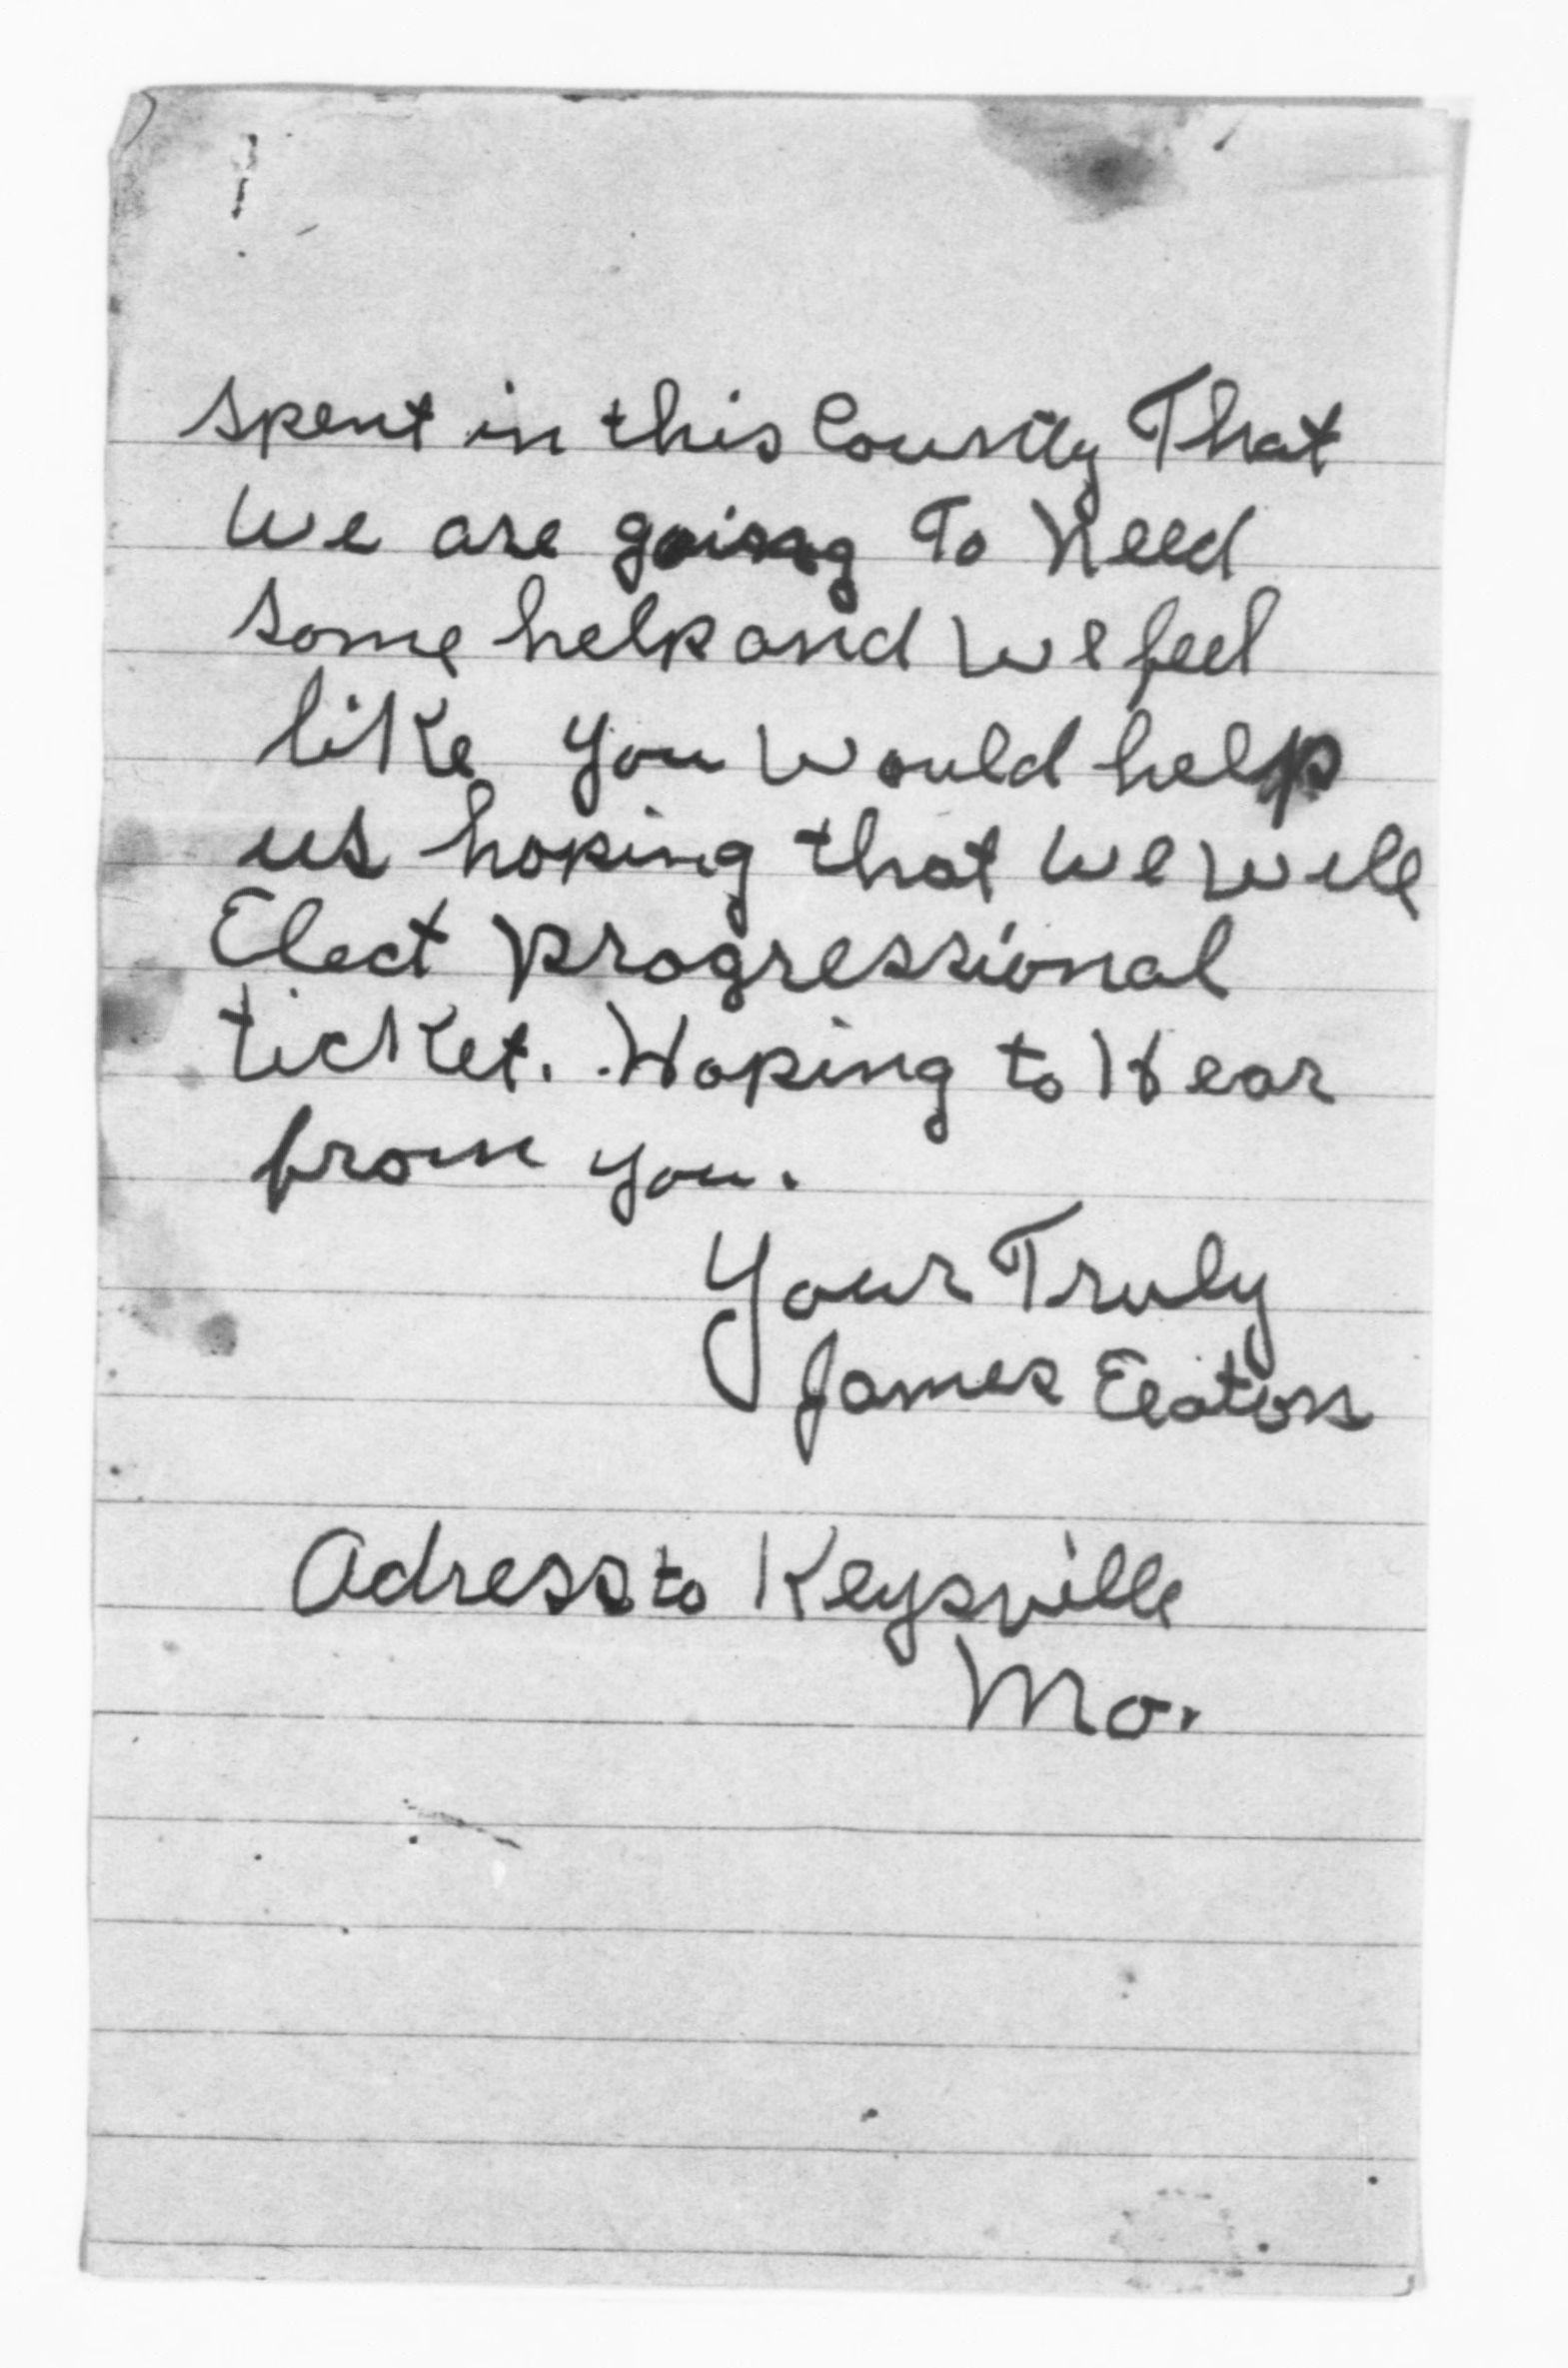 spent in this County That
we are going To Need
some help and we feel
like you would help
us hoping that we will
Elect progressional
ticket. Hoping to Hear
from you.
Your Truly
James Eaton
Adress to Keysville
Mo.